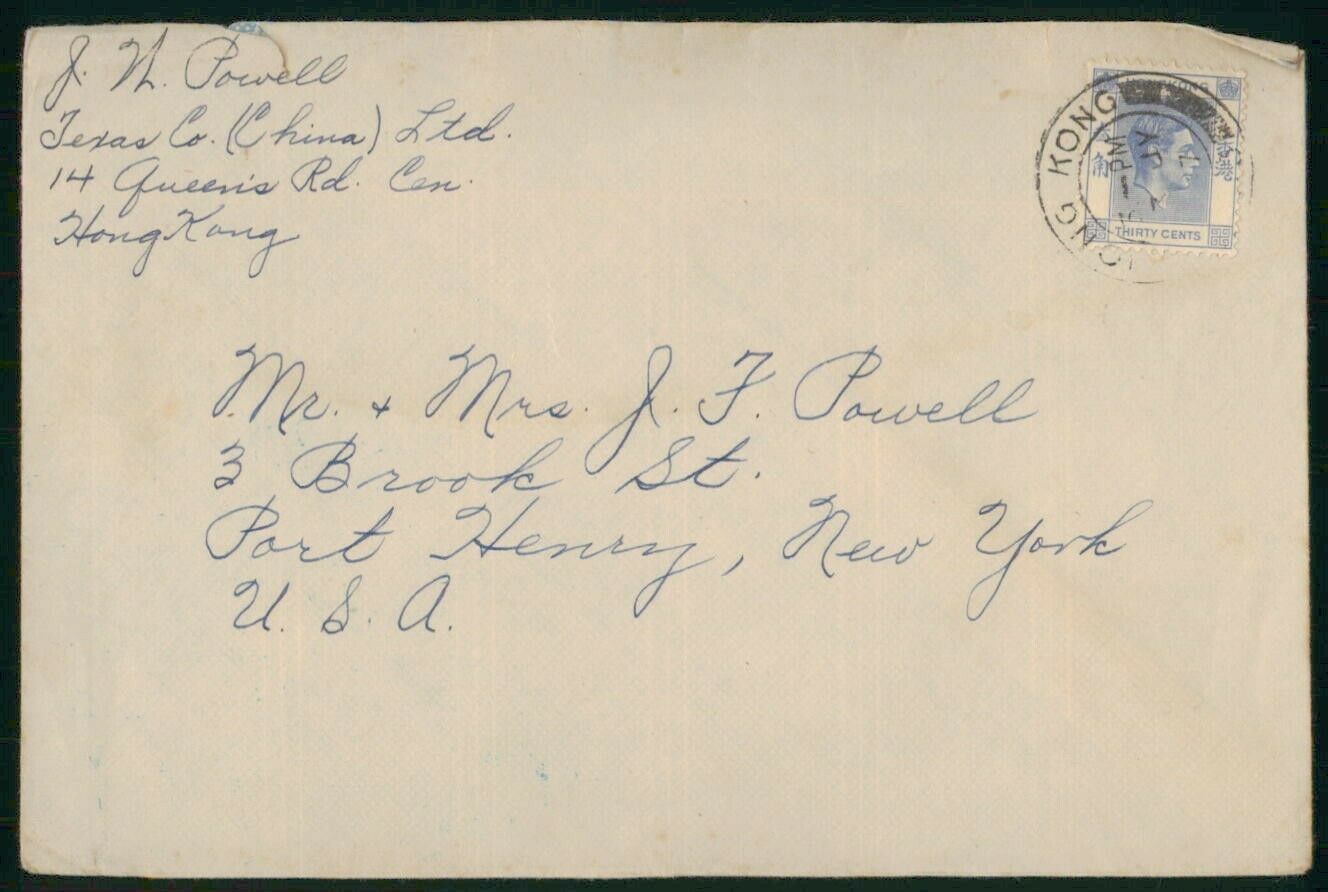 J. W. Powell
Texas Co. (China) Ltd.
14 Queen's Rd. Cen.
Hong Kong
HONG KONG
PM
JY
角
香港
THIRTY CENTS
Mr. + Mrs. J. F. Powell
3 Brook St.
Port Henry, New York
U. S. A.